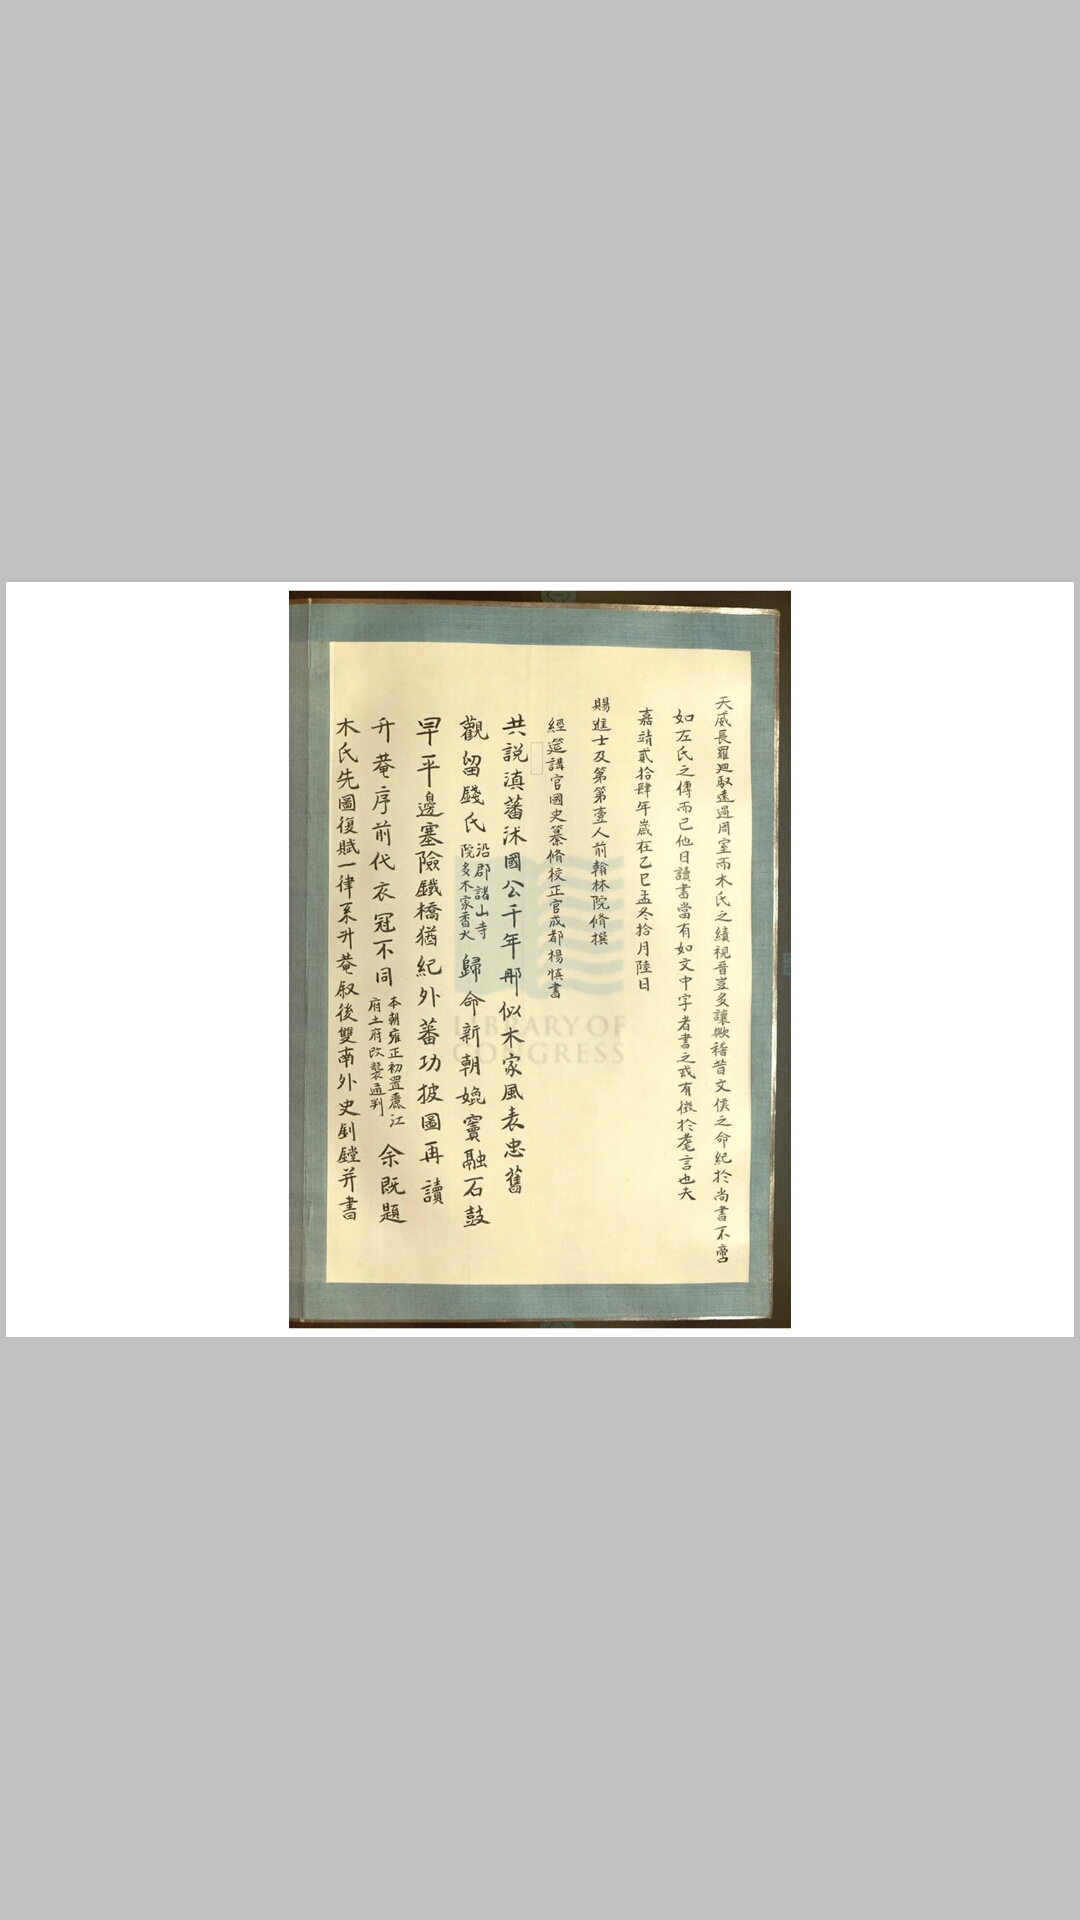 天威長羅廻馭遠過周室而木氏之績視晉豈多讓歟稽昔文侯之命紀於尚書不啻
如左氏之傳而已他日讀書當有如文中字者書之或有徵於耄言也夫
嘉靖貳拾肆年歲在乙巳孟冬拾月陸日
賜進士及第第壹人前翰林院脩撰
經筵講官國史纂脩校正官成都楊慎書
共説滇藩沭國公千年那似木家風表忠舊
觀留錢氏沿郡諸山寺院多木家香火歸命新朝媲竇融石鼓
早平邊塞險鐵橋猶紀外蕃功披圖再讀
升菴序前代衣冠不同本朝雍正初置麗江府土府改襲通判余既題
木氏先圖復賦一律系升菴叙後雙南外史劉鏜并書
LIBRARY OF
CONGRESS